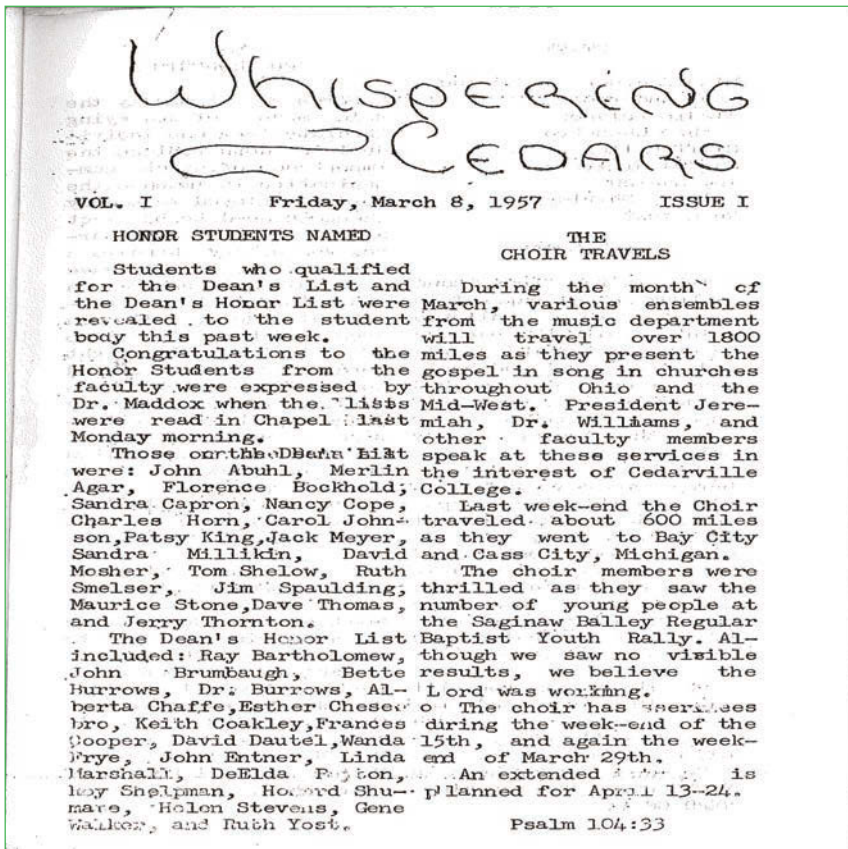 WHISPERING
CEDARS
VOL. I Friday, March 8, 1957 ISSUE I
HONOR STUDENTS NAMED
Students who qualified
for the Dean's List and
the Dean's Honor List were
revealed to the student
body this past week.
Congratulations to the
Honor Students from the
faculty were expressed by
Dr. Maddox when the lists
were read in Chapel last
Monday morning.
Those on the Dean's List
were: John Abuhl, Merlin
Agar, Florence Bockhold,
Sandra Capron, Nancy Cope,
Charles Horn, Carol John-
son,Patsy King,Jack Meyer,
Sandra Millikin, David
Mosher, Tom Shelow, Ruth
Smelser, Jim Spaulding,
Maurice Stone,Dave Thomas,
and Jerry Thornton.
The Dean's Honor List
included: Ray Bartholomew,
John Brumbaugh, Bette
Burrows, Dr. Burrows, Al-
berta Chaffe,Esther Chese
bro, Keith Coakley,Frances
Cooper, David Dautel,Wanda
Frye, John Entner, Linda
Marshall, DeElda
Roy Shelpman, Howard Shu-
mare, Helen Stevens, Gene
Walker, and Ruth Yost.
THE
CHOIR TRAVELS
During the month of
March, various ensembles
from the music department
will travel over 1800
miles as they present the
gospel in song in churches
throughout Ohio and the
Mid-West. President Jere-
miah, Dr. Williams, and
other faculty members
speak at these services in
the interest of Cedarville
College.
Last week-end the Choir
traveled about 600 miles
as they went to Bay City
and Cass City, Michigan.
The choir members were
thrilled as they saw the
number of young people at
the Saginaw Balley Regular
Baptist Youth Rally. Al-
though we saw no visible
results, we believe the
Lord was working.
The choir has
diring the week-end of the
15th, and again the week-
end of March 29th.
An extended is
planned for April 13-24.
Psalm 104:33